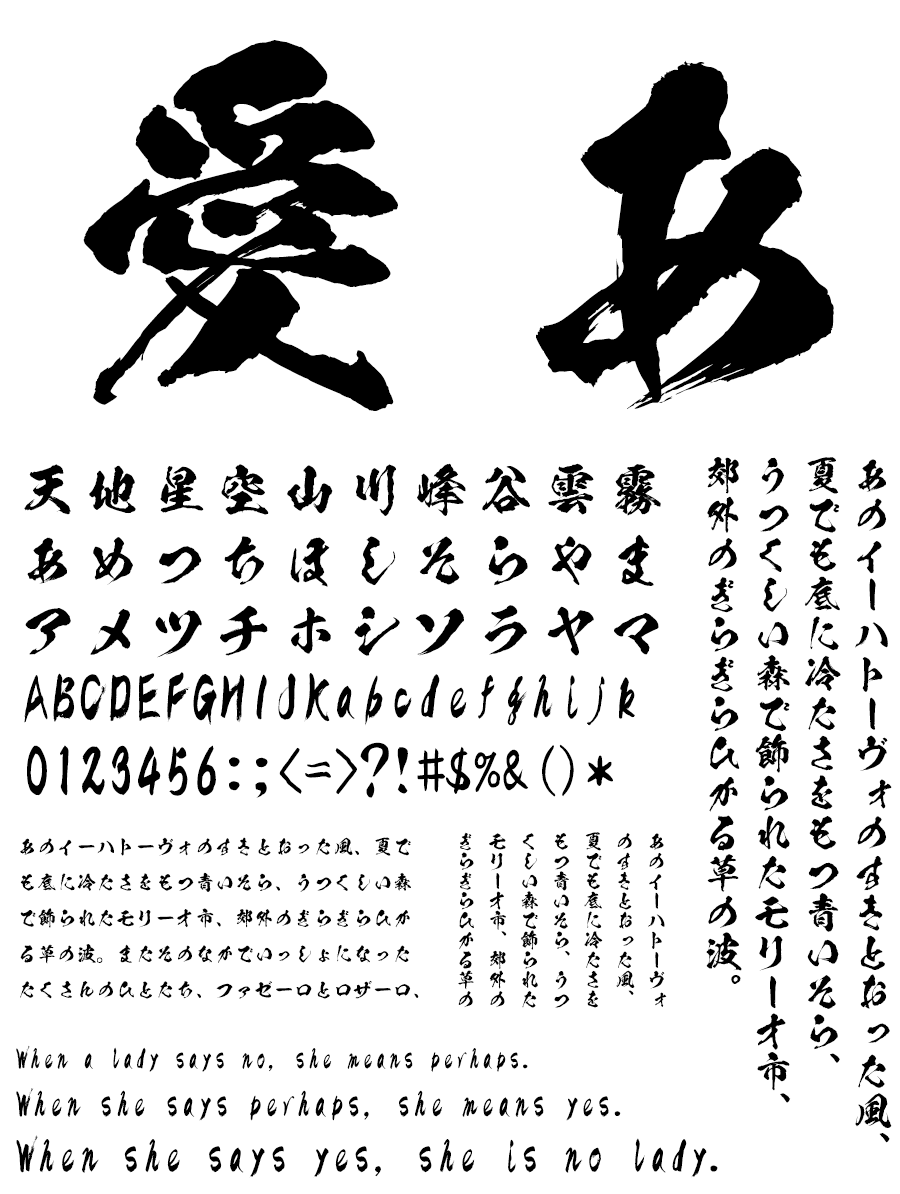 愛
あ
天地星空山川峰谷雲霧
あめつちほしそらやま
アメツチホシソラヤマ
ABCDEFGHIJKabcdefghijk
0123456:;<=>?!#$%&()*
あのイーハトーヴォのすきとおった風、
夏でも底に冷たさをもつ青いそら、
うつくしい森で飾られたモリーオ市、
郊外のぎらぎらひかる草の波。
あのイーハトーヴォのすきとおった風、夏で
も底に冷たさをもつ青いそら、うつくしい森
で飾られたモリーオ市、郊外のぎらぎらひか
る草の波。またそのなかでいっしょになった
たくさんのひとたち、ファゼーロとロザーロ、
あのイーハトーヴォ
のすきとおった風、
夏でも底に冷たさを
もつ青いそら、うつ
くしい森で飾られた
モリーオ市、郊外の
ぎらぎらひかる草の
When a lady says no, she means perhaps.
When she says perhaps, she means yes.
When she says yes, she is no lady.